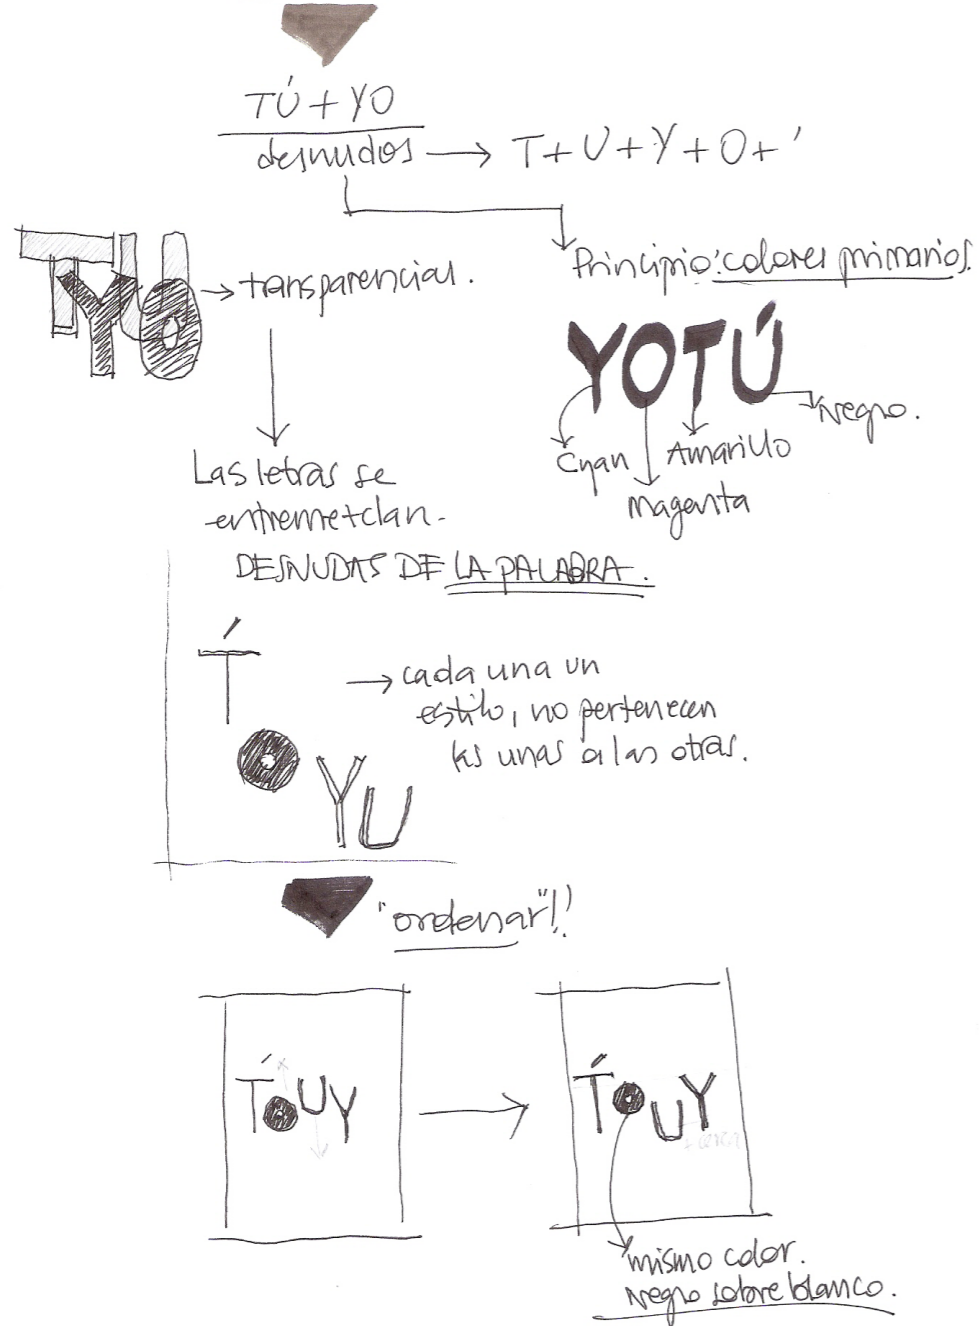 TÚ + YO
desnudos → T + U + Y + O + '
Principio: colores primarios.
TYUO
→ transparencias.
YOTÚ
Negro.
Cyan
Amarillo
Magenta
Las letras se
entremetclan.
DESNUDAS DE LA PALABRA.
T́
O
YU
→ cada una un
estilo, no pertenecen
las unas a las otras.
"ordenar"!!
T́OUY
T́OUY
+ cerca
mismo color.
Negro sobre blanco.